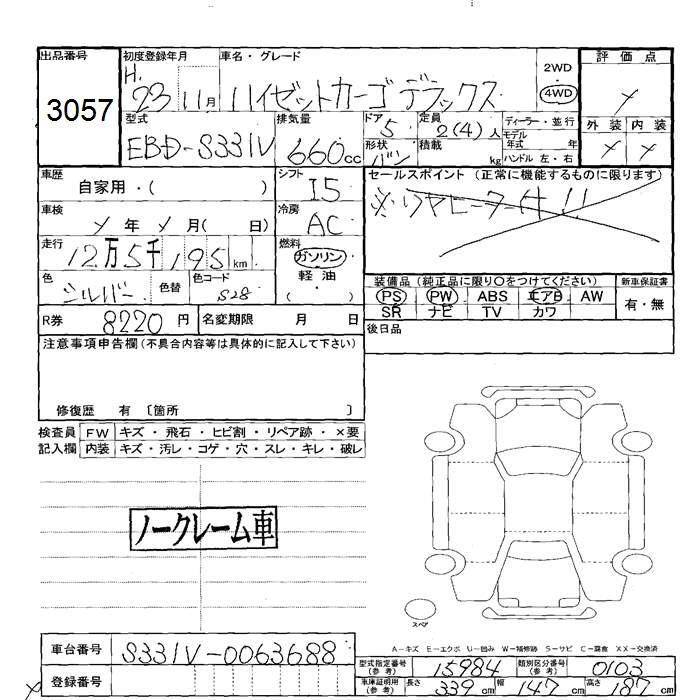 出品番号 初度登録年月 車名・グレード 評価点
3057 H. 23 11月 ハイゼットカーゴ デラックス 2WD 4WD
型式 排気量 ドア 定員 ディーラー・並行 外装 内装
EBD-S331V 660cc 5 2(4)人 モデル年式 年
形状 バン 積載 kg ハンドル 左・右
車歴 自家用・( ) シフト I5 セールスポイント (正常に機能するものに限ります)
車検 年 月( 日) 冷房 AC
走行 12万5千195km 燃料 ガソリン 軽油 ( )
色 シルバー 色替 色コード S28
装備品 (純正品に限り〇をつけてください) 新車保証書
PS PW ABS エアB AW 有・無
SR ナビ TV カワ
R券 8220円 名変期限 月 日 後日品
注意事項申告欄(不具合内容等は具体的に記入して下さい)
修復歴 有 〔箇所 〕
検査員 FW キズ・飛石・ヒビ割・リペア跡・×要
記入欄 内装 キズ・汚レ・コゲ・穴・スレ・キレ・破レ
ノークレーム車
スペア
A-キズ E-エクボ U-凹み W-補修跡 S-サビ C-腐食 XX-交換済
車台番号 S331V-0063688
型式指定番号(参考) 15984 類別区分番号(参考) 0103
登録番号 車庫証明用(参考) 長さ 339cm 幅 147cm 高さ 187cm